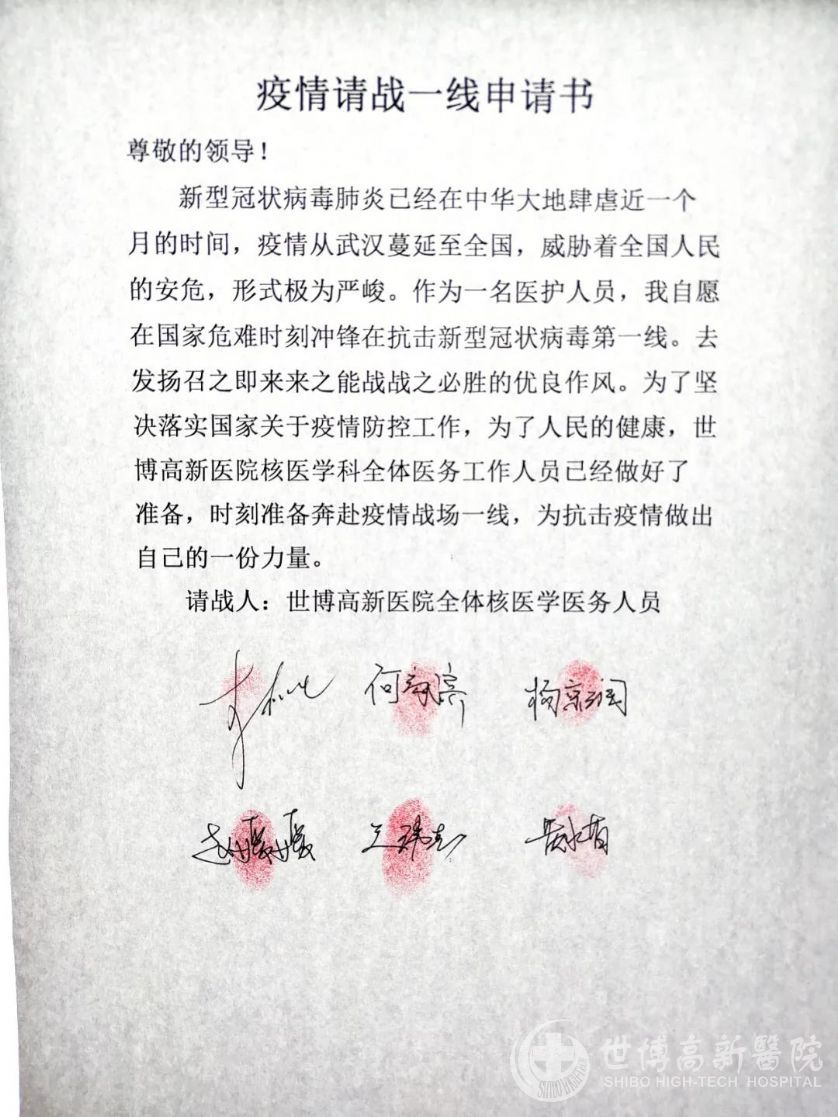 疫情请战一线申请书
尊敬的领导！
新型冠状病毒肺炎已经在中华大地肆虐近一个
月的时间，疫情从武汉蔓延至全国，威胁着全国人民
的安危，形式极为严峻。作为一名医护人员，我自愿
在国家危难时刻冲锋在抗击新型冠状病毒第一线。去
发扬召之即来来之能战战之必胜的优良作风。为了坚
决落实国家关于疫情防控工作，为了人民的健康，世
博高新医院核医学科全体医务工作人员已经做好了
准备，时刻准备奔赴疫情战场一线，为抗击疫情做出
自己的一份力量。
请战人：世博高新医院全体核医学医务人员
世博高新醫院
SHIBO HIGH-TECH HOSPITAL